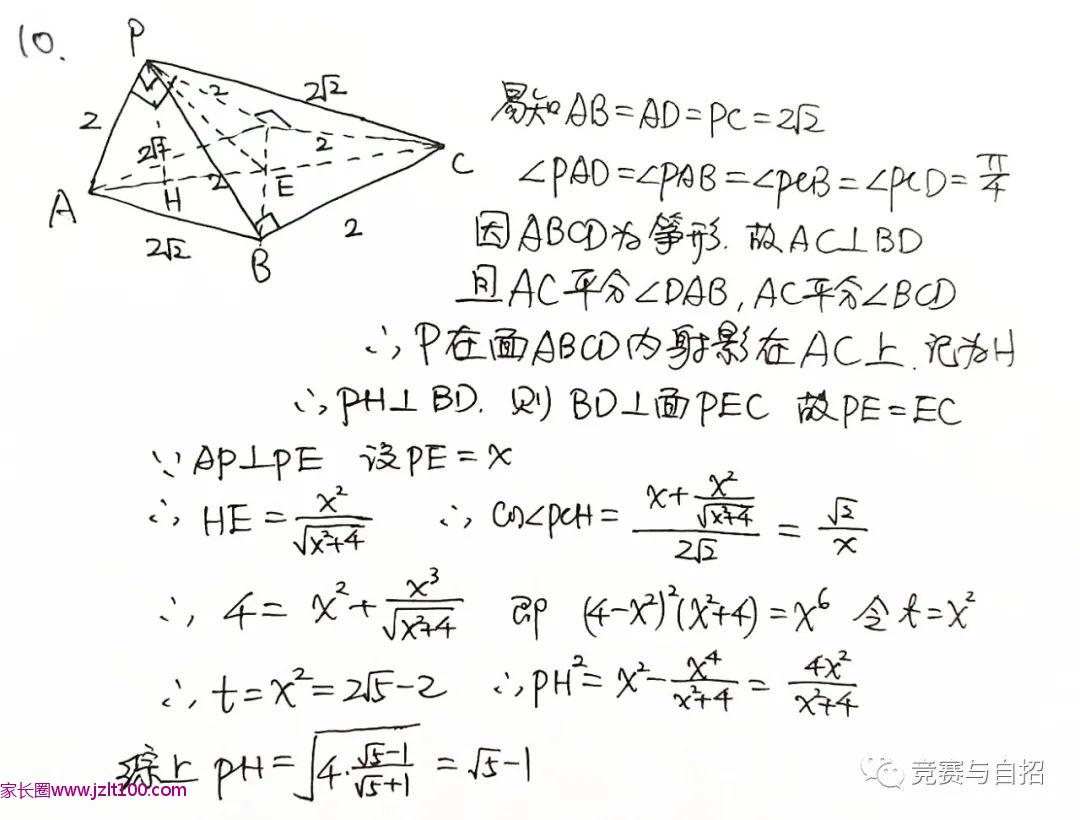 10.
P
2
2
2√2
2√2
2
2
A
H
E
C
2√2
B
2
易知AB=AD=PC=2√2
∠PAD=∠PAB=∠PCB=∠PCD=π/4
因ABCD为筝形.故AC⊥BD
且AC平分∠DAB,AC平分∠BCD
∴P在面ABCD内射影在AC上.记为H
∴PH⊥BD.则BD⊥面PEC 故PE=EC
∵AP⊥PE 设PE=x
∴HE=x²/√(x²+4) ∴cos∠PCH=(x+x²/√(x²+4))/(2√2)=√2/x
∴4=x²+x³/√(x²+4) 即(4-x²)²(x²+4)=x⁶ 令t=x²
∴t=x²=2√5-2 ∴PH²=x²-x⁴/(x²+4)=4x²/(x²+4)
综上 PH=√(4·(√5-1)/(√5+1))=√5-1
竞赛与自招
家长圈www.jzlt100.com